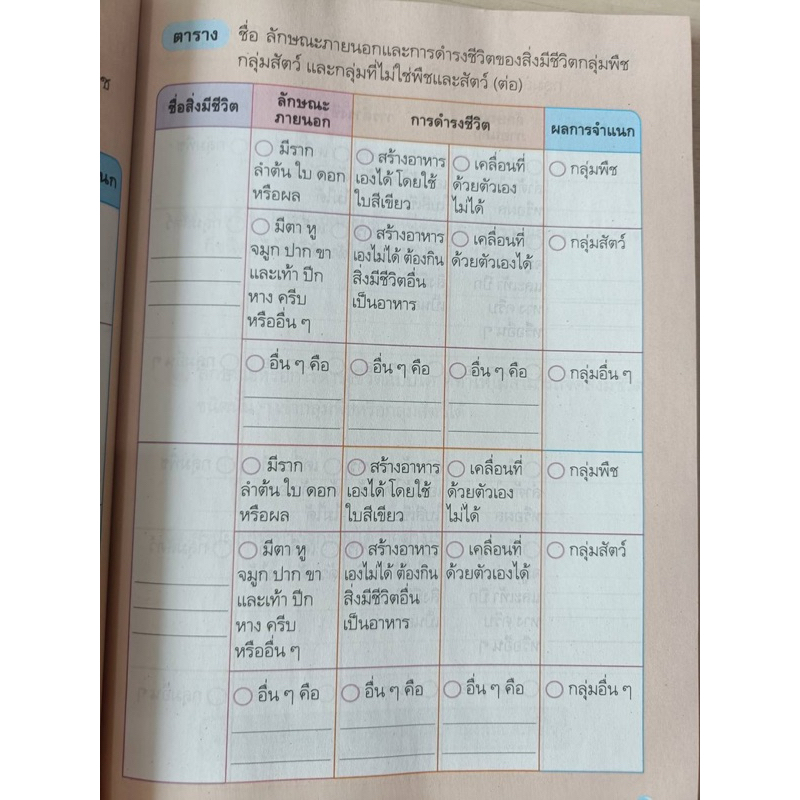 ตาราง ชื่อ ลักษณะภายนอกและการดำรงชีวิตของสิ่งมีชีวิตกลุ่มพืช
กลุ่มสัตว์ และกลุ่มที่ไม่ใช่พืชและสัตว์ (ต่อ)
ชื่อสิ่งมีชีวิต
ลักษณะ
ภายนอก
การดำรงชีวิต
ผลการจำแนก
มีราก
ลำต้น ใบ ดอก
หรือผล
สร้างอาหาร
เองได้ โดยใช้
ใบสีเขียว
เคลื่อนที่
ด้วยตัวเอง
ไม่ได้
กลุ่มพืช
มีตา หู
จมูก ปาก ขา
และเท้า ปีก
หาง ครีบ
หรืออื่น ๆ
สร้างอาหาร
เองไม่ได้ ต้องกิน
สิ่งมีชีวิตอื่น
เป็นอาหาร
เคลื่อนที่
ด้วยตัวเองได้
กลุ่มสัตว์
อื่น ๆ คือ
อื่น ๆ คือ
อื่น ๆ คือ
กลุ่มอื่น ๆ
มีราก
ลำต้น ใบ ดอก
หรือผล
สร้างอาหาร
เองได้ โดยใช้
ใบสีเขียว
เคลื่อนที่
ด้วยตัวเอง
ไม่ได้
กลุ่มพืช
มีตา หู
จมูก ปาก ขา
และเท้า ปีก
หาง ครีบ
หรืออื่น ๆ
สร้างอาหาร
เองไม่ได้ ต้องกิน
สิ่งมีชีวิตอื่น
เป็นอาหาร
เคลื่อนที่
ด้วยตัวเองได้
กลุ่มสัตว์
อื่น ๆ คือ
อื่น ๆ คือ
อื่น ๆ คือ
กลุ่มอื่น ๆ